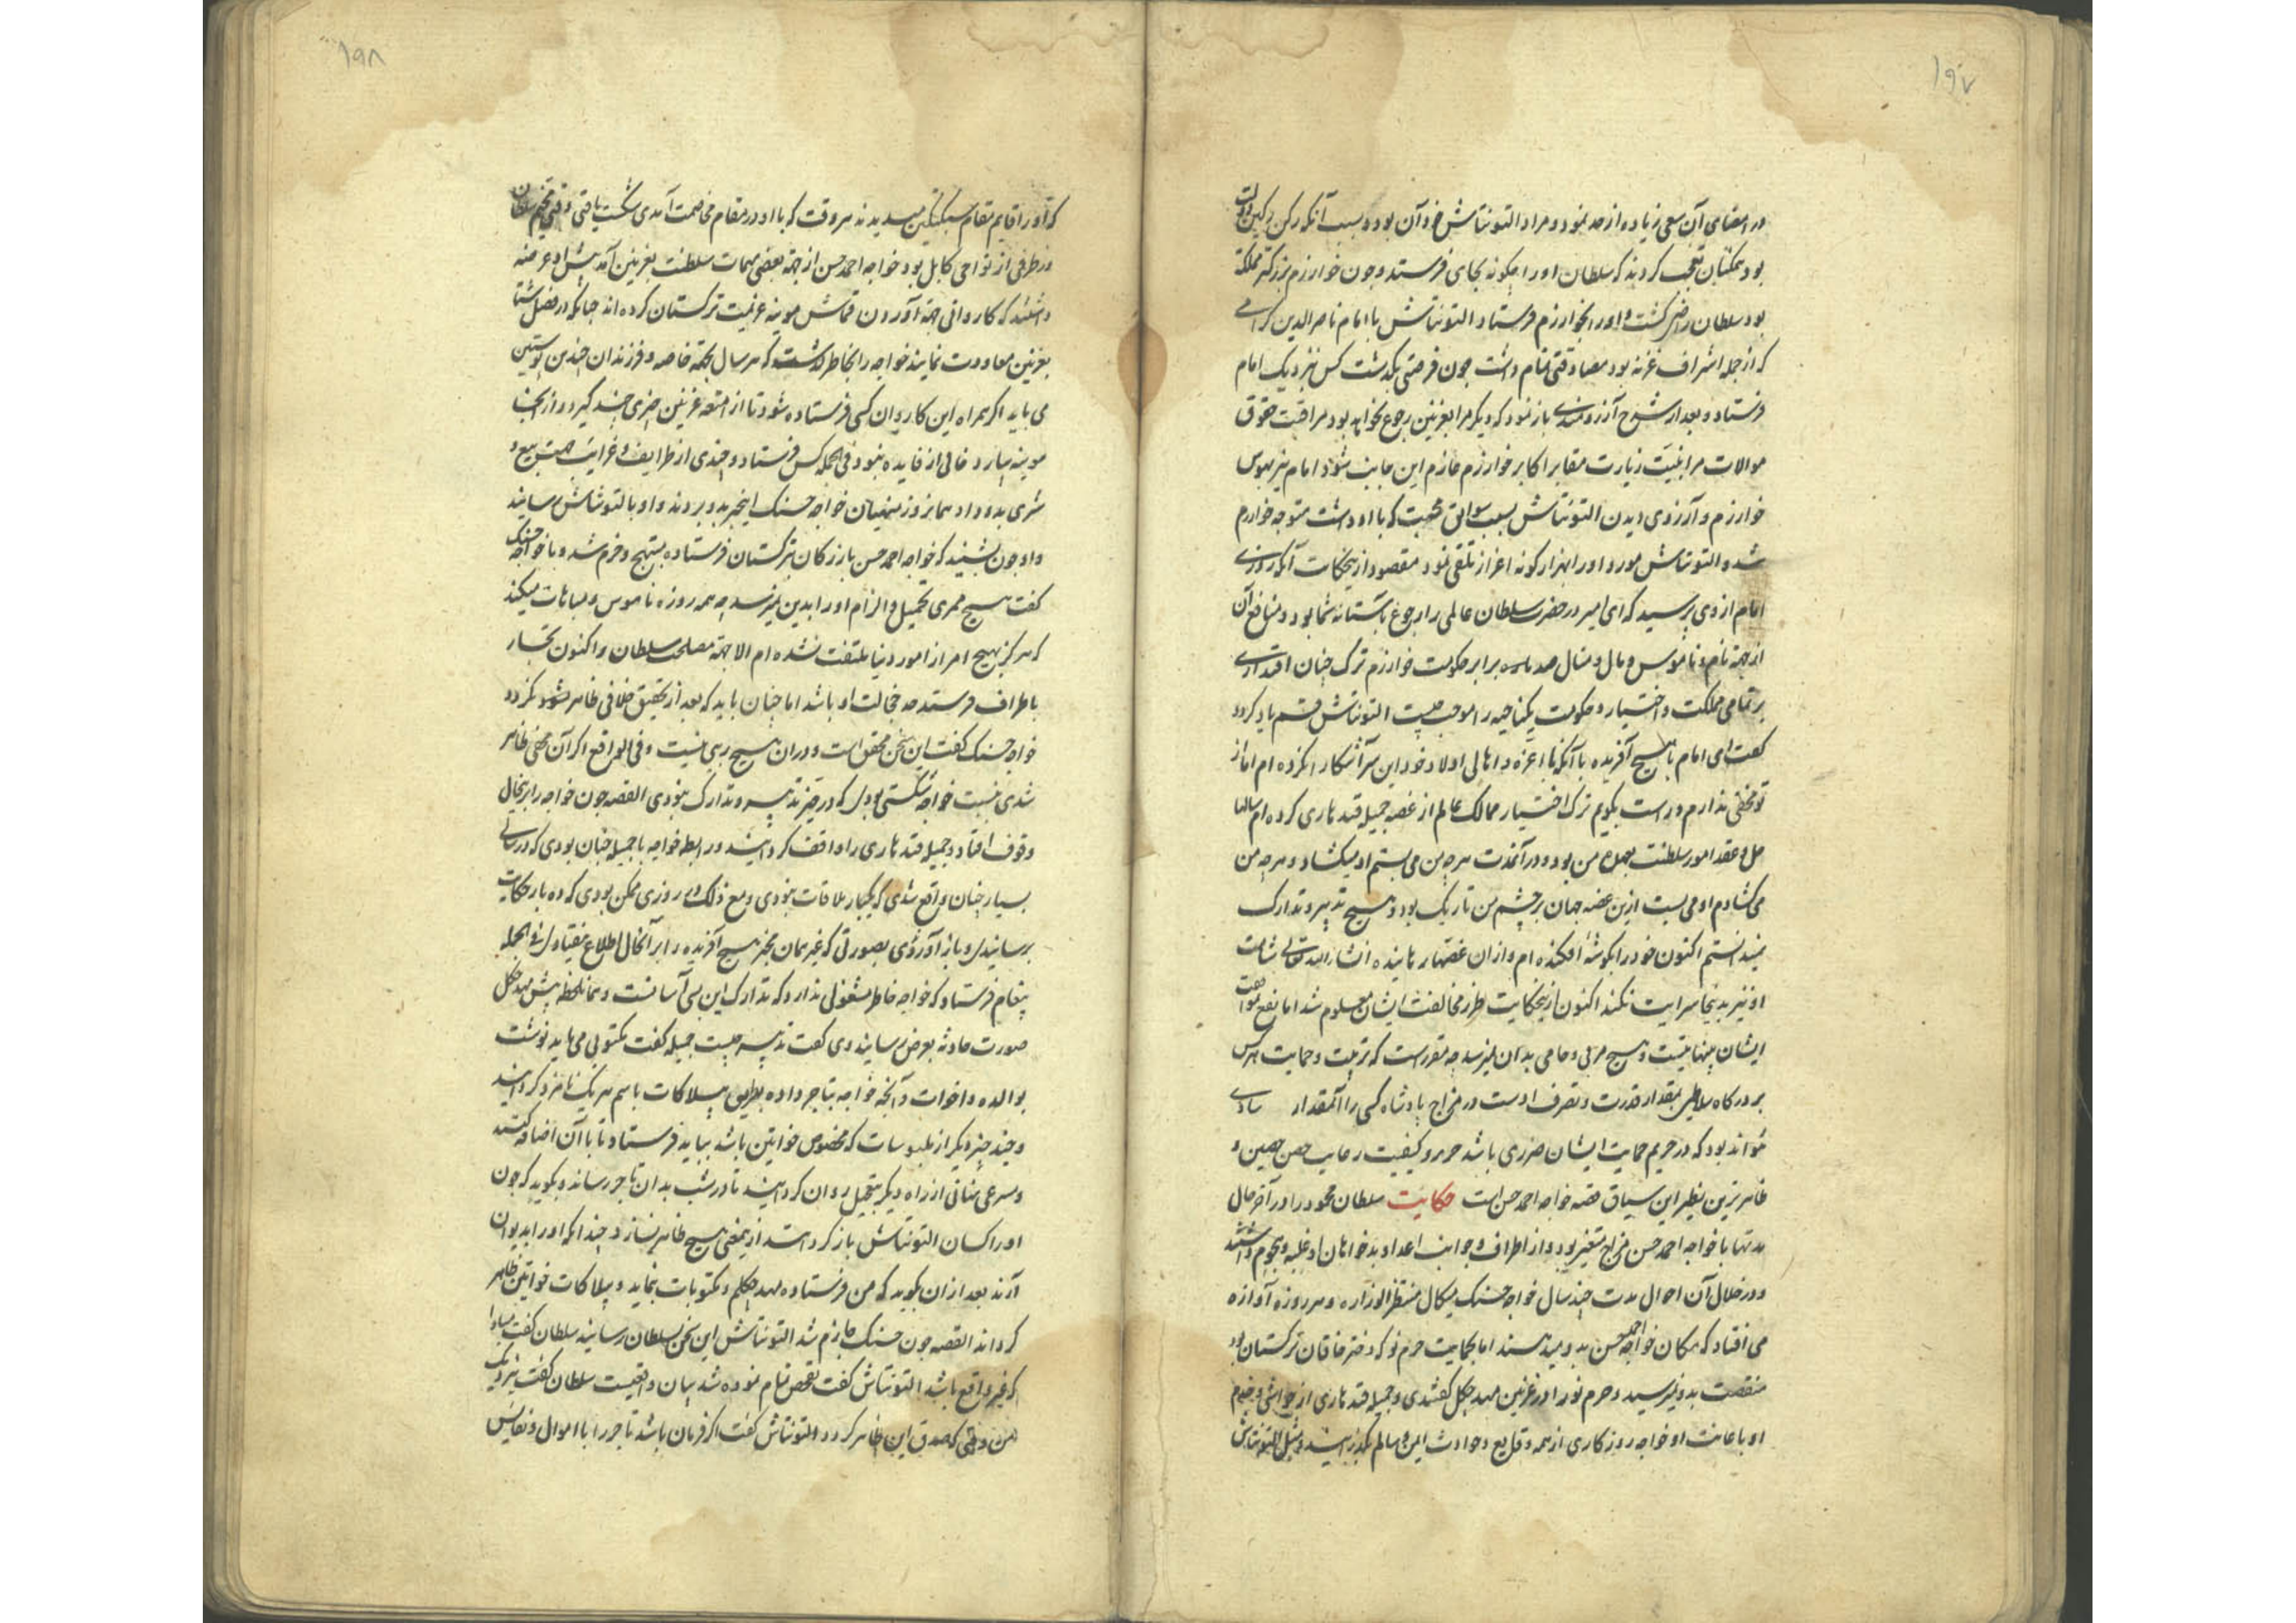 ۱۹۷
در امضای آن سعی زیاده از حد نمود و مراد التونتاش خود آن بود و سبب آنکه رکن رکین دولت
بود همکنان تعجب کردند که سلطان او را چکونه بجای فرستد و چون خوارزم بزرکتر مملکة
بود سلطان راضی کشت و او را بخوارزم فرستاد التونتاش با امام ناصر الدین کرامی
که از جمله اشراف غزنه بود مصادقتی تمام داشت چون فرصتی بکذشت کس نزدیک امام
فرستاد و بعد از شرح آرزومندی باز نمود که دیکر مرا بغزنین رجوع نخواهد بود مراقبت حقوق
موالات مرا بنیت زیارت مقابر اکابر خوارزم عازم این جانب شود امام نیز بهوس
خوارزم و آرزوی دیدن التونتاش بسبب سوابق محبت که با او داشت متوجه خوارزم
شد و التونتاش مورد او را بهزار کونه اعزاز تلقی نمود مقصود ازین حکایت آنکه روزی
امام از وی پرسید که ای امیر در حضرت سلطان عالمی را رجوع بآستانه شما بود و منافع آن
از جهة نام و ناموس و مال و منال صد باره برابر حکومت خوارزم ترک چنان اقتداری
بر تمامی مملکت و اختیار و حکومت یکناحیه را موجب چیست التونتاش قسم یاد کرد و
کفت ای امام با هیچ آفریده با آنکه با اعزه و اهالی اولاد خود این سر آشکارا نکرده ام اما از
تو مخفی ندارم و راست بکویم ترک اختیار ممالک عالم از غصه جمیله قندهاری کرده ام سالها
حل و عقد امور سلطنت بعهده من بود و در آنمدت هرچه من می بستم او میکشاد و هرچه من
می کشادم او می بست ازین غصه جهان بر چشم من تاریک بود و هیچ تدبیر و تدارک
نمیدانستم اکنون خود را بکوشه افکنده ام و از ان غصها رهانیده انشاء الله تعالی شآمت
او نیز بدینجا سرایت نکند اکنون ازینحکایت طرز مخالفت ایشان معلوم شد اما نفع موافقت
ایشان بینهایتست و هیچ مربی و حامی بدان نمیرسد چه مقررست که تربیت و حمایت هر کس
بر درکاه سلاطین بمقدار قدرت و تصرف اوست در مزاج پادشاه کسی را آنمقدار
تواند بود که در حریم حمایت ایشان ضرری باشد حرر و کیفیت رعایت حصن حصین و
ظاهر ترین نظیر این سیاق قصه خواجه احمد حسن است حکایت سلطان محمود را در آخر حال
مدتها با خواجه احمد حسن مزاج متغیر بود و از اطراف و جوانب اعدا و بدخواهان او غلبه و هجوم داشتند
و در خلال آن احوال مدت چند سال خواجه حسنک میکال منتظر الوزاره و هر روزه آوازه
می افتاد که مکان خواجه احمد حسن بدو میدهند اما بحمایت حرم نو که دختر خاقان ترکستان بود
منقصت بدو نمیرسید و حرم نو را در غزنین مهد چکل کفتندی و جمیله قندهاری از خواص و خدم
او باعانت او خواجه روزکاری از همه وقایع و حوادث ایمن و سالم بکذرانید و مثل التونتاش
۱۹۸
که او را قایم مقام سبکتکین میدیدند هر وقت که با او در مقام مخاصمت آمدی شکست یافتی وقتی مخیم سلطان
در طرفی از نواحی کابل بود خواجه احمد حسن از جهة بعضی مهمات سلطنت بغزنین آمد پیش او عرضه
داشتند که کاروانی جهة آوردن قماش مویینه عزیمت ترکستان کرده اند چنانکه در فصل شتا
بغزنین معاودت نمایند خواجه را بخاطر کذشت که هر سال بجهة خاصه و فرزندان چندین پوستین
می باید اکر همراه این کاروان کسی فرستاده شود تا از امتعه غزنین چیزی چند کیرد و از آنجا
مویینه بیارد خالی از فایده نبود فی الجمله کس فرستاد و چندی از ظرایف و غرایب جهت بیع و
شری بدو داد همانروز منهیان خواجه حسنک اینخبر بدو بردند و او بالتونتاش رسانید
و او چون بشنید که خواجه احمد حسن بازرکان بترکستان فرستاده مبتهج و خرم شد و با خواجه حسنک
کفت هیچ ممری تخمیل و الزام او را بدین نمیرسد چه همه روزه ناموس و مباهات میکند
که هرکز بهیچ امر از امور دنیا ملتفت نشده ام الا جهة مصلحت سلطان و اکنون تجار
باطراف فرستد چه خجالت او باشد اما چنان باید که بعد از تحقیق خلافی ظاهر نشود نکردد
خواجه حسنک کفت این سخن محقق است و در ان هیچ ریبی نیست و فی الواقع اکر آن معنی ظاهر
شدی بنسبت خواجه شکستی بودی که در حیز تدبیر و تدارک نبودی القصه چون خواجه را برینحال
وقوف افتاد جمیله قندهاری را واقف کردانید و رابطه خواجه با جمیله چنان بودی که در سالی
بسیار چنان واقع شدی که یکبار ملاقات نبودی و مع ذلک در روزی ممکن بودی که ده بار حکایت
برسانیدی و باز آوردی بصورتی که غیر همان مخبر هیچ آفریده را بر آنحال اطلاع نیفتادی فی الجمله
پیغام فرستاد که خواجه خاطر مشغول ندارد که تدارک این بسی آسانست و همانلحظه پیش مهد چکل
صورت حادثه بعرض رسانید وی کفت تدبیر چیست جمیله کفت مکتوبی می باید نوشت
بوالده و اخوات و آنچه خواجه بتاجر داده بطریق بیلاکات باسم هر یک نامزد کردانید
و چند چیز دیکر از ملبوسات که مخصوص خواتین باشد بباید فرستاد تا با آن اضافه کنند
و مسرعی نهانی از راه دیکر بتعجیل روان کردانید تا در شب بدان تاجر رساند و بکوید که چون
او را کسان التونتاش باز کردانند ازینمعنی هیچ ظاهر نسازد چندانکه او را بدیوان
آرند بعد از ان بکوید که من فرستاده مهد چکلم و مکتوبات بنماید و بیلاکات خواتین ظاهر
کرداند القصه چون حسنک جازم شد التونتاش این سخن بسلطان رسانید سلطان کفت مبادا
که غیر واقع باشد التونتاش کفت تفحص تمام نموده شد بیان واقعیست سلطان کفت نزدیک
من وقتی که صدق این ظاهر کردد التونتاش کفت اکر فرمان باشد تاجر را با اموال و نفایس